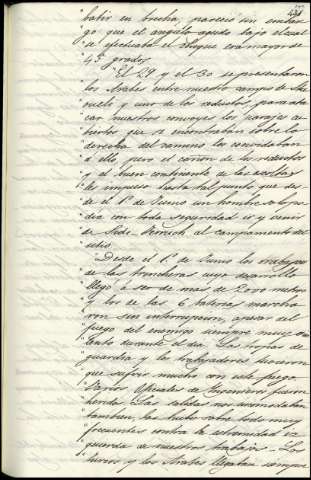 431
batir en brecha, pareció sin embar-
go que el ángulo agudo bajo el cual
se efectuaba el choque era mayor de
45 grados.
"El 29 y el 30 se presentaron
los Arabes entre nuestro campo de
y uno de los reductos, para ata-
car nuestros convoyes los parajes cu-
biertos que se encontraban sobre la
derecha del camino los convidaban
á ello, pero el cañon de los reductos
y el buen continente de las escoltas
les impuso hasta tal punto que des-
de el 1º de Junio un hombre solo po-
dia con toda seguridad ir y venir
de Sidi-Ferruch al campamento del
sitio.
"Desde el 1º de Junio los trabajos
de las trincheras cuyo desarrollo
llegó á ser de mas de 2000 metros
y los de las 6 baterias marcha-
ron sin interrupcion, apesar del
fuego del enemigo siempre muy vio-
lento durante el dia. Las tropas de
guardia y los trabajadores tuvieron
que sufrir mucho con este fuego
Varios Oficiales de Ingenieros fueron
heridos. Las salidas no incomodaban
tambien, las hubo sobre todo muy
frecuentes contra la estremidad iz-
quierda de nuestros trabajos. Los
turcos y los Arabes llegaban siempre